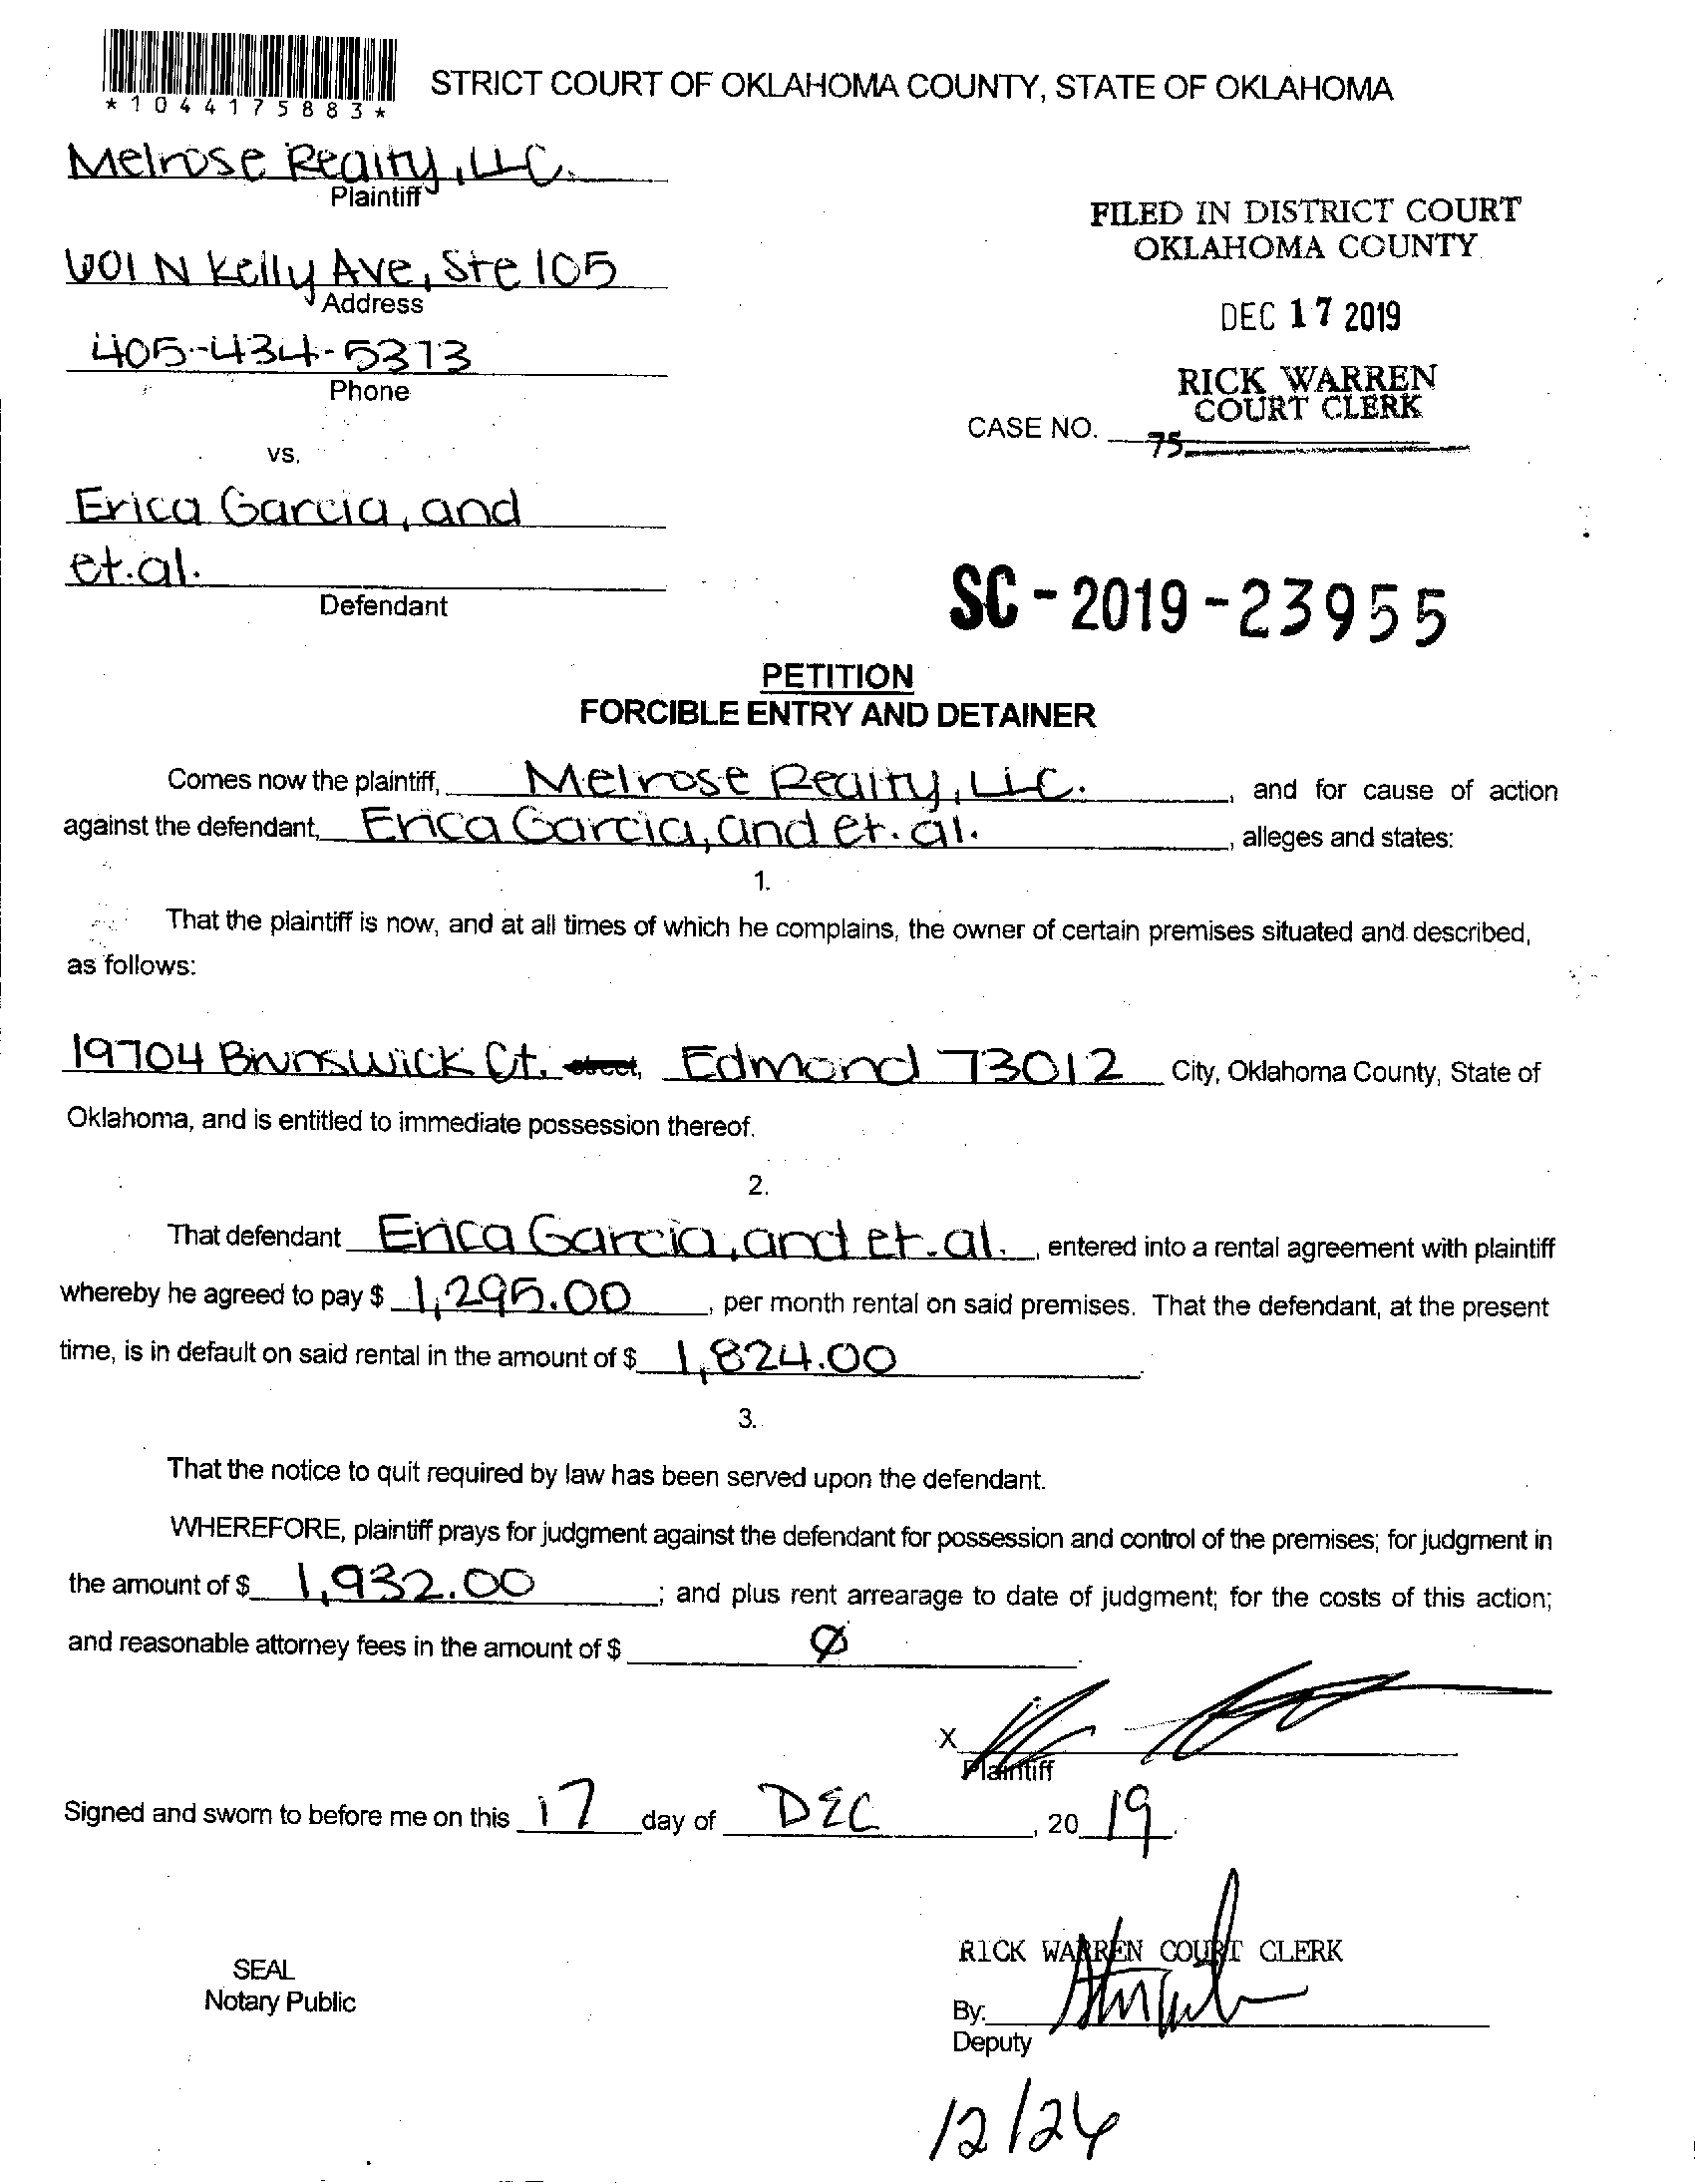 *1044175883*
STRICT COURT OF OKLAHOMA COUNTY, STATE OF OKLAHOMA
Melrose Realty, LLC.
Plaintiff
601 N Kelly Ave, Ste 105
Address
405-434-5373
Phone
vs.
Erica Garcia, and
et.al.
Defendant
FILED IN DISTRICT COURT
OKLAHOMA COUNTY
DEC 17 2019
RICK WARREN
COURT CLERK
CASE NO.
75
SC-2019-23955
PETITION
FORCIBLE ENTRY AND DETAINER
Comes now the plaintiff, Melrose Realty, LLC. , and for cause of action
against the defendant, Erica Garcia, and et. al. , alleges and states:
1.
That the plaintiff is now, and at all times of which he complains, the owner of certain premises situated and described,
as follows:
19704 Brunswick Ct. street, Edmond 73012 City, Oklahoma County, State of
Oklahoma, and is entitled to immediate possession thereof.
2.
That defendant Erica Garcia, and et. al. , entered into a rental agreement with plaintiff
whereby he agreed to pay $ 1,295.00 , per month rental on said premises. That the defendant, at the present
time, is in default on said rental in the amount of $ 1,824.00
3.
That the notice to quit required by law has been served upon the defendant.
WHEREFORE, plaintiff prays for judgment against the defendant for possession and control of the premises; for judgment in
the amount of $ 1,932.00 ; and plus rent arrearage to date of judgment; for the costs of this action;
and reasonable attorney fees in the amount of $ Ø
X
Plaintiff
Signed and sworn to before me on this 17 day of DEC , 20 19.
SEAL
Notary Public
RICK WARREN COURT CLERK
By:
Deputy
12/26